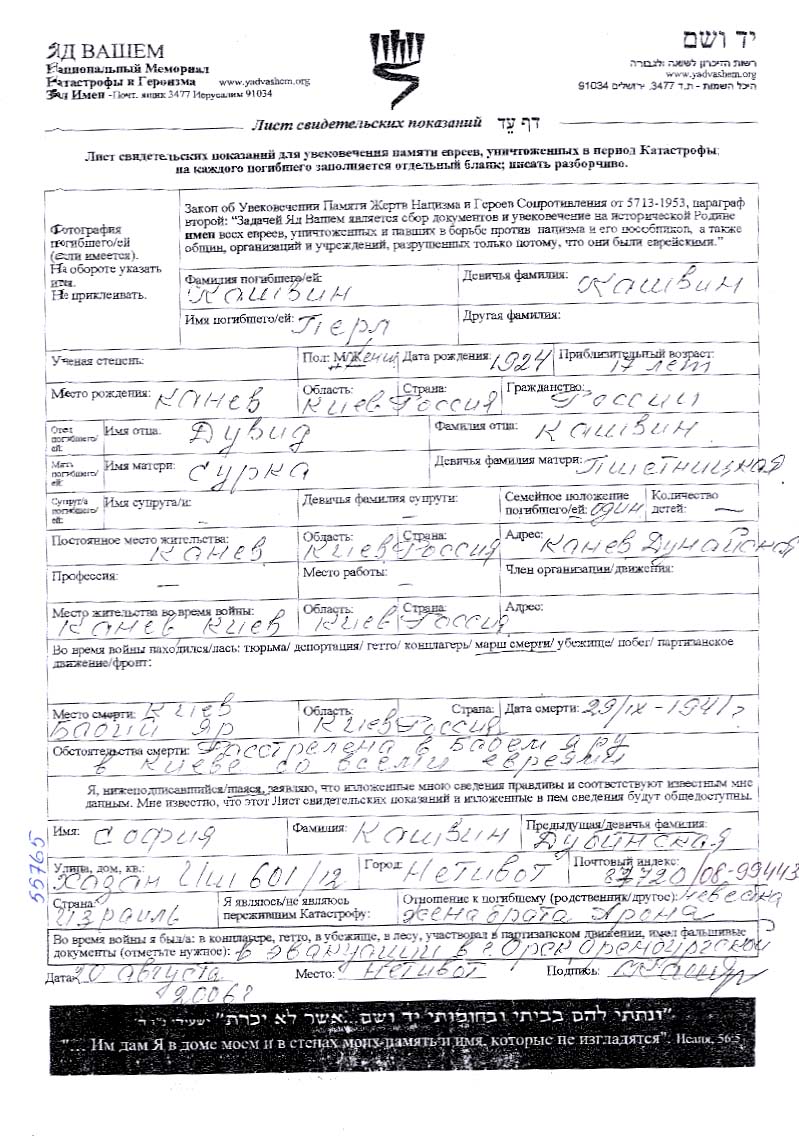 ЯД ВАШЕМ
Национальный Мемориал
Катастрофы и Героизма www.yadvashem.org
Зал Имен -Почт. ящик 3477 Иерусалим 91034
יד ושם
רשות הזיכרון לשואה ולגבורה
www.yadvashem.org
היכל השמות - ת.ד 3477, ירושלים 91034
Лист свидетельских показаний דף עד
Лист свидетельских показаний для увековечения памяти евреев, уничтоженных в период Катастрофы;
на каждого погибшего заполняется отдельный бланк; писать разборчиво.
Фотография
погибшего/ей
(если имеется).
На обороте указать
имя.
Не приклеивать.
Закон об Увековечении Памяти Жертв Нацизма и Героев Сопротивления от 5713-1953, параграф
второй: “Задачей Яд Вашем является сбор документов и увековечение на исторической Родине
имен всех евреев, уничтоженных и павших в борьбе против нацизма и его пособников, а также
общин, организаций и учреждений, разрушенных только потому, что они были еврейскими.”
Фамилия погибшего/ей: Кашвин Девичья фамилия: Кашвин
Имя погибшего/ей: Перл Другая фамилия:
Ученая степень: Пол: М/Ж Дата рождения: 1924 Приблизительный возраст: 17 лет
Место рождения: Канев Область: Киев Страна: Россия Гражданство: России
Отец погибшего/ей: Имя отца: Дувид Фамилия отца: Кашвин
Мать погибшего/ей: Имя матери: Сурка Девичья фамилия матери: Пшетницкая
Супруг/а погибшего/ей: Имя супруга/и: – Девичья фамилия супруги: – Семейное положение погибшего/ей: один Количество детей: –
Постоянное место жительства: Канев Область: Киев Страна: Россия Адрес: Канев Дунайская
Профессия: — Место работы: – Член организации/движения:
Место жительства во время войны: Канев Киев Область: Киев Страна: Россия Адрес:
Во время войны находился/лась: тюрьма/ депортация/ гетто/ концлагерь/ марш смерти/ убежище/ побег/ партизанское
движение/фронт:
Место смерти: Киев Бабий Яр Область: Киев Страна: Россия Дата смерти: 29/IX-1941г
Обстоятельства смерти: Расстрелена в Бабем яру
в Киеве со всеми евреями
Я, нижеподписавшийся/шаяся, заявляю, что изложенные мною сведения правдивы и соответствуют известным мне
данным. Мне известно, что этот Лист свидетельских показаний и изложенные в нем сведения будут общедоступны.
55765
Имя: София Фамилия: Кашвин Предыдущая/девичья фамилия: Дубинская
Улица, дом, кв.: Хазан Иш 601/12 Город: Нетивот Почтовый индекс: 87720/08-99443
Страна: Израиль Я являюсь/не являюсь пережившим Катастрофу: Отношение к погибшему (родственник/другое): невестка
жена брата Арона
Во время войны я был/а: в концлагере, гетто, в убежище, в лесу, участвовал в партизанском движении, имел фальшивые
документы (отметьте нужное): в эвакуации в г. Орск Оренбургской
Дата: 20 августа 2006г Место: Нетивот Подпись:
"ונתתי להם בביתי ובחומותי יד ושם...אשר לא יכרת" ישעיהו נ"ו ה'
"... Им дам Я в доме моем и в стенах моих память и имя, которые не изгладятся". Исаия, 56:5